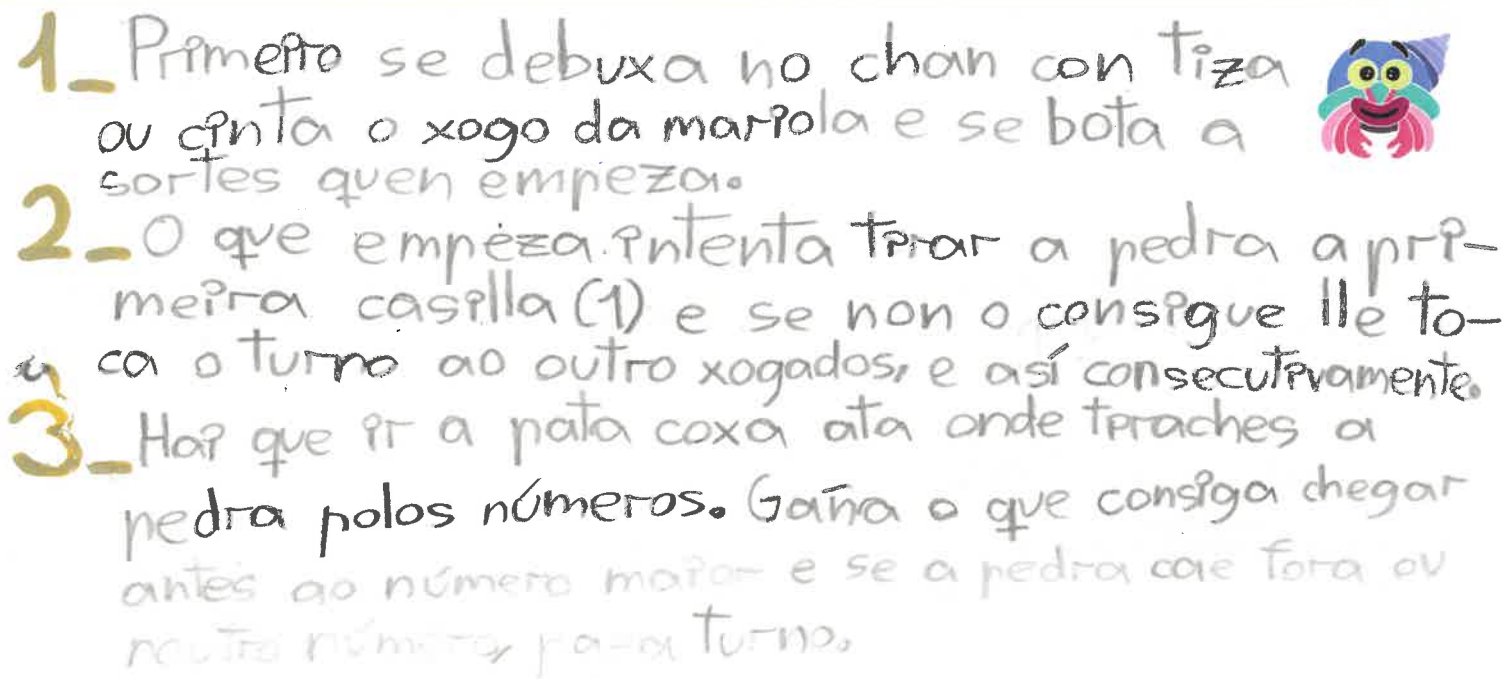 1_ Primeiro se debuxa no chan con tiza
ou cinta o xogo da mariola e se bota a
sortes quen empeza.
2_ O que empeza intenta tirar a pedra a pri-
meira casilla (1) e se non o consigue lle to-
ca o turno ao outro xogados, e así consecutivamente.
3_ Hai que ir a pata coxa ata onde tiraches a
pedra polos números. Gaña o que consiga chegar
antes ao número maior e se a pedra cae fora ou
noutro número, pasa turno.